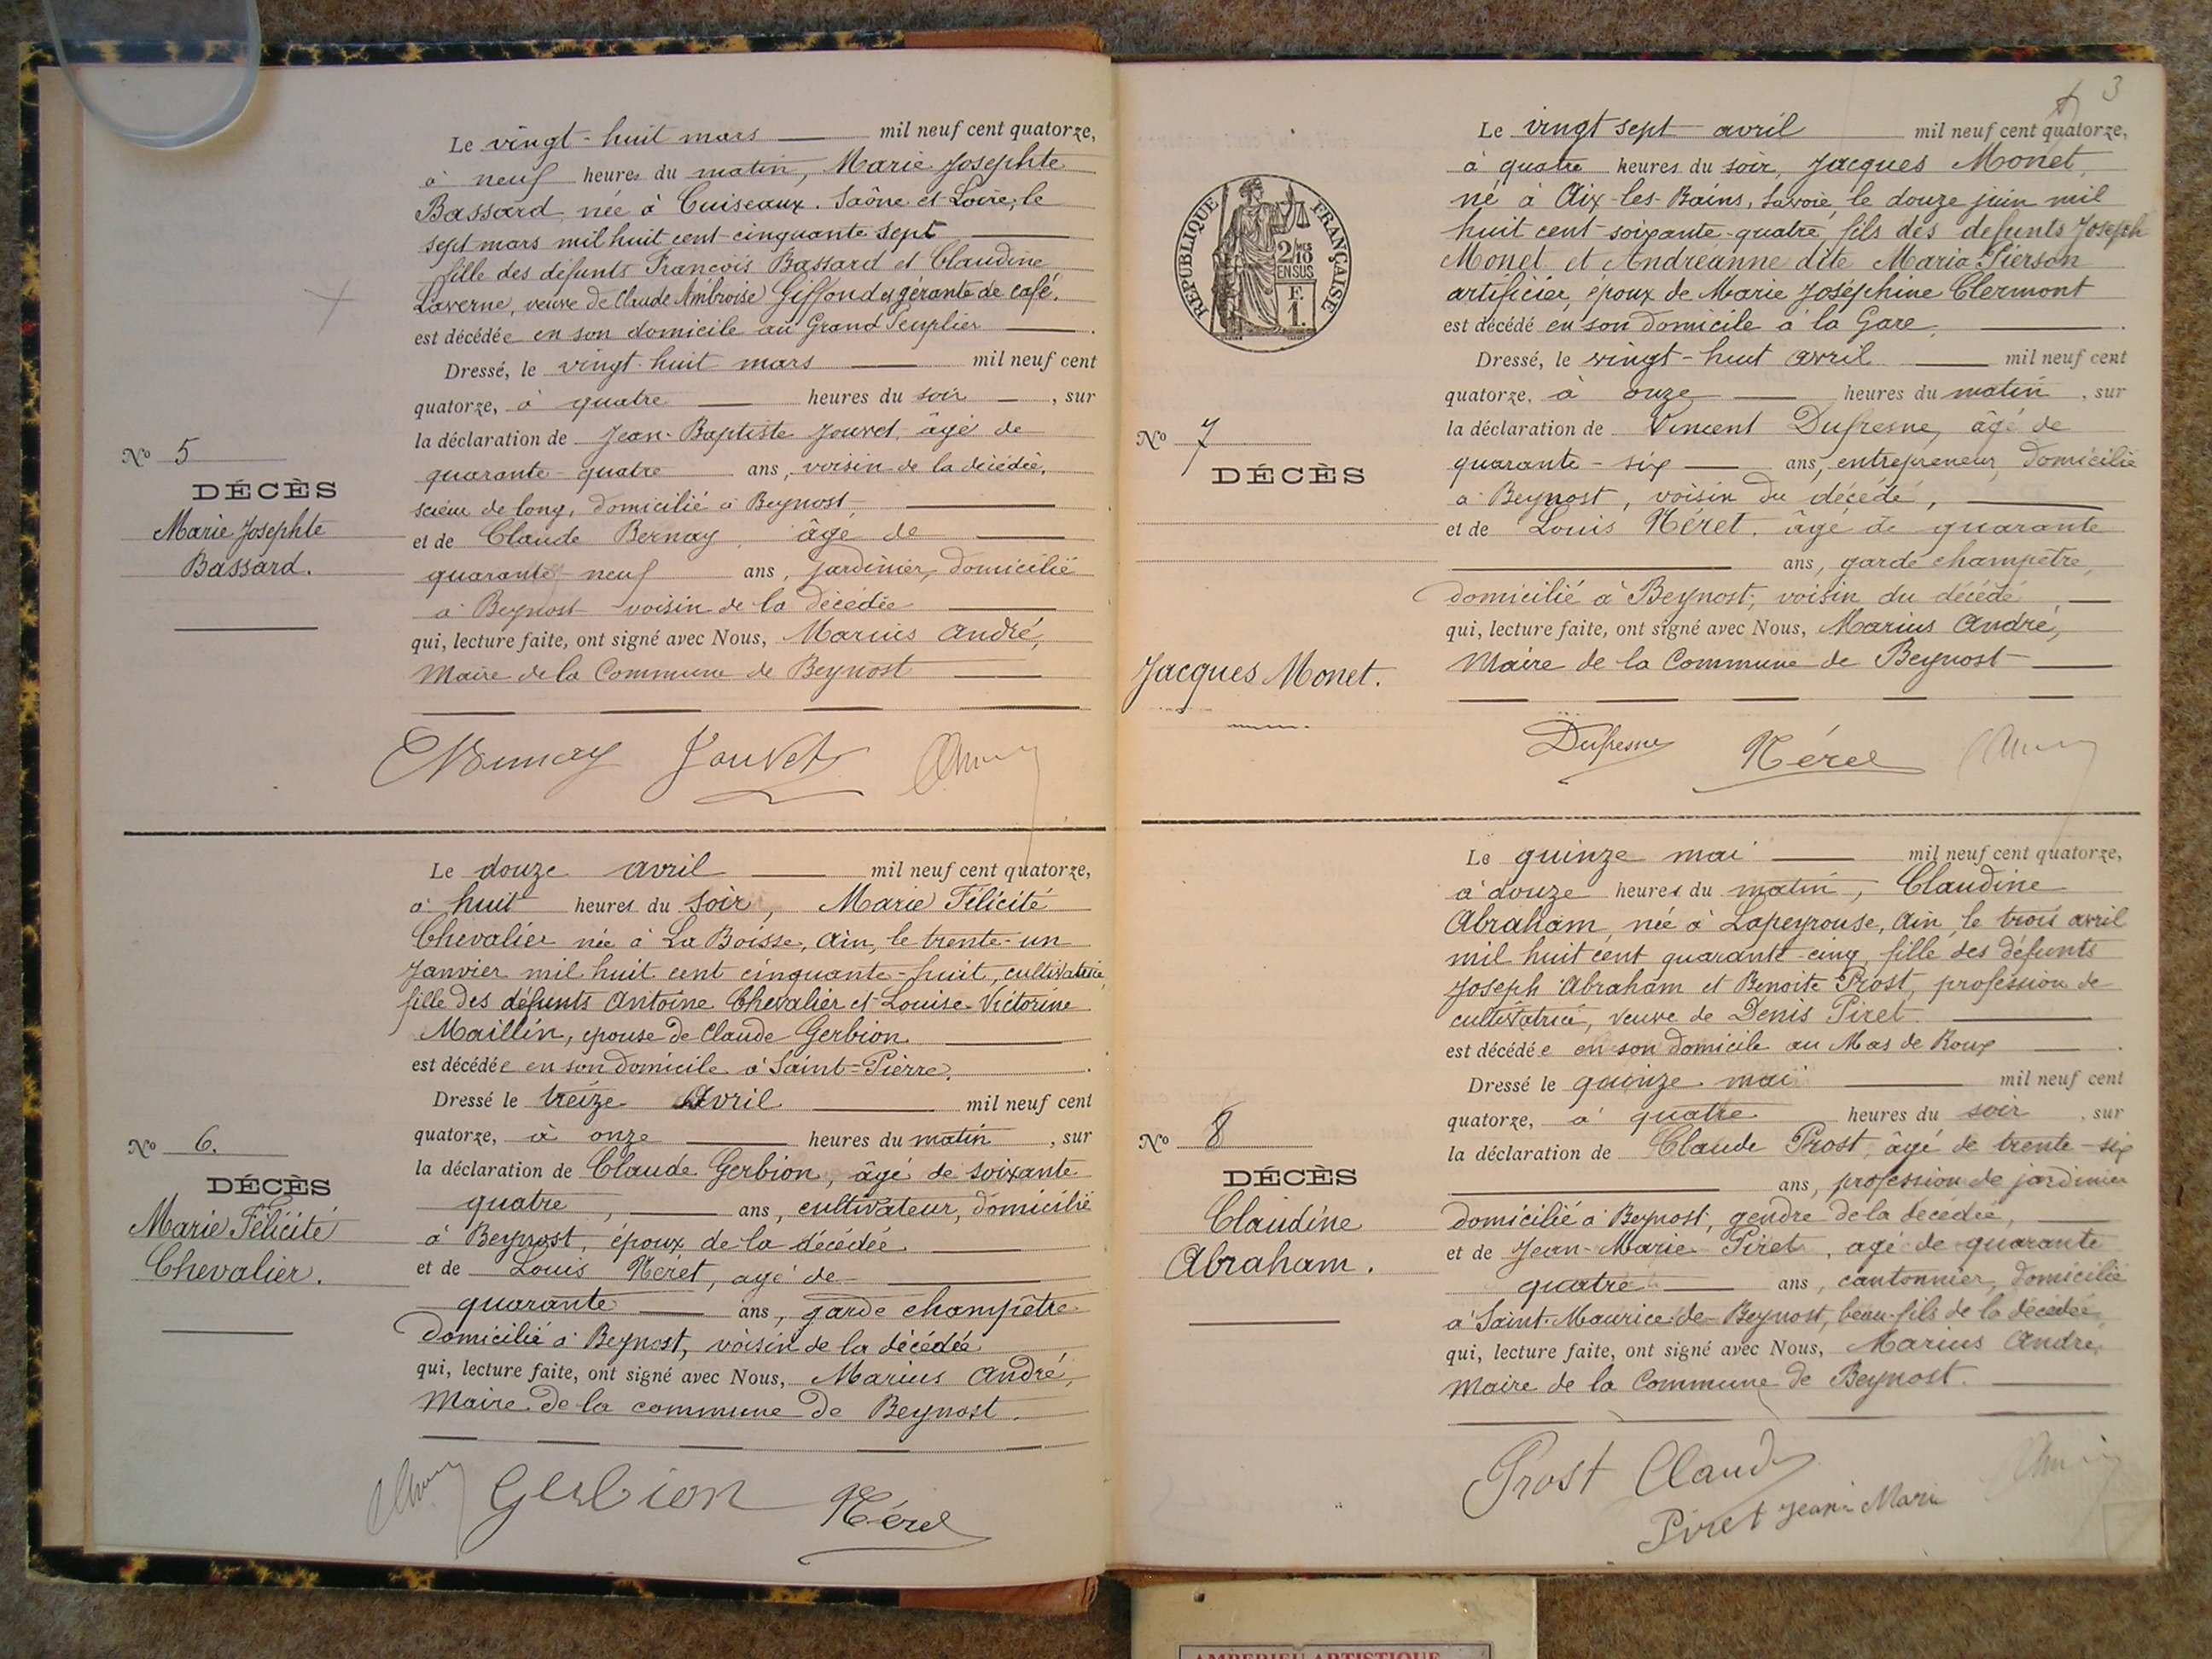 Le vingt-huit mars mil neuf cent quatorze,
à neuf heures du matin, Marie Josephte
Bassard née à Cuiseaux. Saône et Loire, le
sept mars mil huit cent cinquante sept
fille des défunts François Bassard et Claudine
Laverne, veuve de Claude Ambroise Giffond gérante de café.
est décédée en son domicile au Grand Peuplier.
Dressé, le vingt-huit mars mil neuf cent
quatorze, à quatre heures du soir, sur
la déclaration de Jean-Baptiste Jouvet, âgé de
quarante-quatre ans, voisin de la décédée,
scieur de long, domicilié à Beynost,
et de Claude Bernay, âgé de
quarante-neuf ans, jardinier, domicilié
à Beynost voisin de la décédée
qui, lecture faite, ont signé avec Nous, Marius André,
Maire de la Commune de Beynost
No 5
DÉCÈS
Marie Josephte
Bassard.
Jouvet
Le douze avril mil neuf cent quatorze,
à huit heures du soir, Marie Félicité
Chevalier née à La Boisse, Ain, le trente-un
Janvier mil huit cent cinquante-huit, cultivatrice
fille des défunts Antoine Chevalier et Louise-Victorine
Maillin, épouse de Claude Gerbion
est décédée en son domicile à Saint-Pierre.
Dressé le treize Avril mil neuf cent
quatorze, à onze heures du matin, sur
la déclaration de Claude Gerbion, âgé de soixante
quatre, ans, cultivateur, domicilié
à Beynost, époux de la décédée
et de Louis Néret, agé de
quarante ans, garde champêtre
domicilié à Beynost, voisin de la décédée
qui, lecture faite, ont signé avec Nous, Marius André,
Maire de la commune de Beynost.
No 6.
DÉCÈS
Marie Félicité
Chevalier.
Gerbion Néret
3
Le vingt sept avril mil neuf cent quatorze,
à quatre heures du soir, Jacques Monet,
né à Aix-les-Bains, Savoie, le douze juin mil
huit cent soixante-quatre, fils des defunts Joseph
Monet et Andréanne dite Maria Pierson
artificier, époux de Marie Joséphine Clermont
est décédé en son domicile à la Gare,
Dressé, le vingt-huit avril mil neuf cent
quatorze, à onze heures du matin, sur
la déclaration de Vincent Dufresne, âgé de
quarante-six ans, entrepreneur, domicilié
à Beynost, voisin du décédé,
et de Louis Néret, âgé de quarante
ans, garde champêtre,
domicilié à Beynost, voisin du décédé
qui, lecture faite, ont signé avec Nous, Marius André,
Maire de la Commune de Beynost
RÉPUBLIQUE FRANÇAISE
2/10 MES
EN SUS
F.
1.
No 7
DÉCÈS
Jacques Monet.
Dufresne Néret
Le quinze mai mil neuf cent quatorze,
à douze heures du matin, Claudine
Abraham, née à Lapeyrouse, Ain, le trois avril
mil huit cent quarante-cinq, fille des défunts
Joseph Abraham et Benoite Prost, profession de
cultivatrice, veuve de Denis Piret.
est décédée en son domicile au Mas de Roux
Dressé le quinze mai mil neuf cent
quatorze, à quatre heures du soir, sur
la déclaration de Claude Prost, âgé de trente-six
ans, profession de jardinier
domicilié à Beynost, gendre de la décédée,
et de Jean-Marie Piret, agé de quarante
quatre ans, cantonnier, domicilié
à Saint-Maurice-de-Beynost, beau-fils de la décédée
qui, lecture faite, ont signé avec Nous, Marius André,
Maire de la Commune de Beynost.
No 8
DÉCÈS
Claudine
Abraham.
Prost Claude
Piret Jean Marie
AMBERIEU ARTISTIQUE